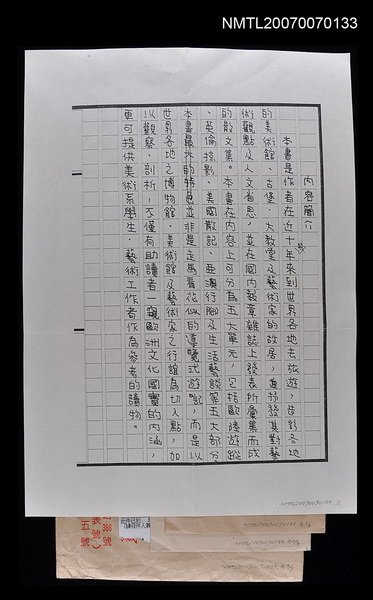 NMTL20070070133
內容簡介
本書是作者在近十年來到世界各地去旅遊，造訪各地
的美術館、古堡、大教堂及藝術家的故居，並抒發其對藝
術觀點及人文省思，並在國內報章雜誌上發表所彙集而成
的散文集。本書在內容上可分為五大單元，包括歐陸遊蹤
、英倫掠影、美國散記、亞澳行腳及生活藝談等五大部分
本書最大的特色並非是走馬看花似的導覽式遊記，而是以
世界各地之博物館、美術館及藝術家之行誼為切入點，加
以觀察、剖析，不僅有助讀者一窺歐洲文化國寶的內涵，
更可提供美術系學生、藝術工作者作為參考的讀物。